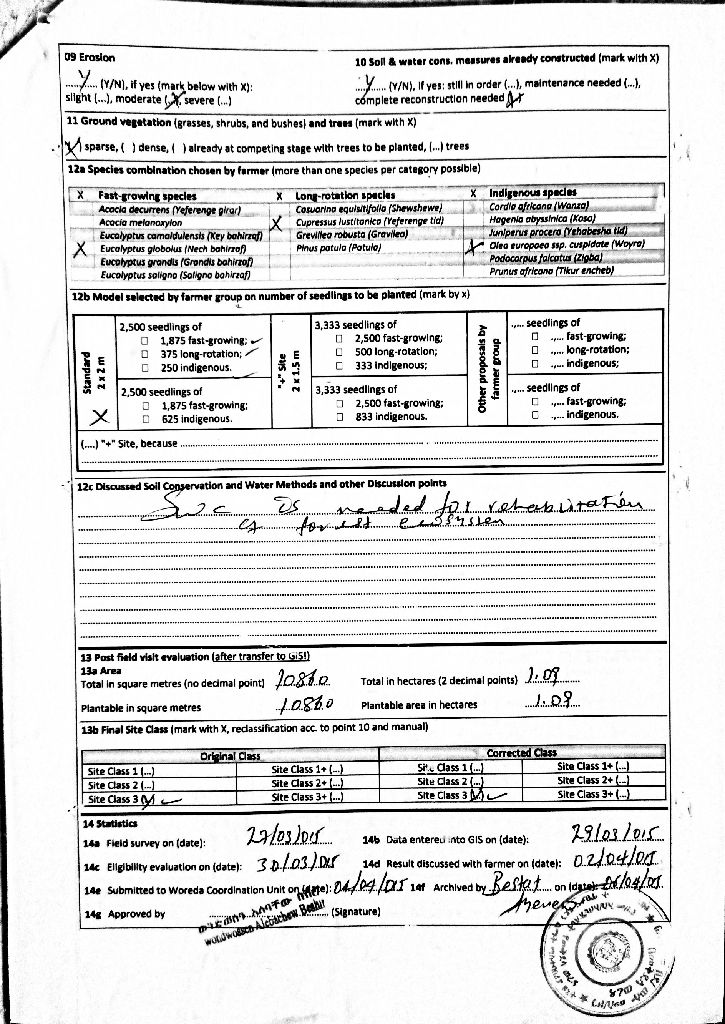 09 Erosion
10 Soil & water cons. measures already constructed (mark with X)
..Y.. (Y/N), if yes (mark below with X):
slight (...), moderate (X, severe (...)
..Y.. (Y/N), if yes: still in order (...), maintenance needed (...),
complete reconstruction needed
11 Ground vegetation (grasses, shrubs, and bushes) and trees (mark with X)
(X) sparse, ( ) dense, ( ) already at competing stage with trees to be planted, (...) trees
12a Species combination chosen by farmer (more than one species per category possible)
X Fast-growing species X Long-rotation species X Indigenous species
Acacia decurrens (Yeferenge girar) Casuarina equisitifolia (Shewshewe) Cordia africana (Wanza)
Acacia melanoxylon X Cupressus lustitanica (Yeferenge tid) Hagenia abyssinica (Koso)
Eucalyptus camaldulensis (Key bahirzaf) Grevillea robusta (Gravilea) Juniperus procera (Yehabesha tid)
X Eucalyptus globolus (Nech bahirzaf) Pinus patula (Patula) X Olea europaea ssp. cuspidate (Woyra)
Eucalyptus grandis (Grandis bahirzaf) Podocarpus falcatus (Zigba)
Eucalyptus saligna (Saligna bahirzaf) Prunus africana (Tikur encheb)
12b Model selected by farmer group on number of seedlings to be planted (mark by x)
Standard
2 x 2 m
X
2,500 seedlings of
1,875 fast-growing; ✓
375 long-rotation; ✓
250 indigenous.
2,500 seedlings of
1,875 fast-growing;
625 indigenous.
"+" Site
2 x 1.5 m
3,333 seedlings of
2,500 fast-growing;
500 long-rotation;
333 indigenous;
3,333 seedlings of
2,500 fast-growing;
833 indigenous.
Other proposals by
farmer group
.,... seedlings of
.,... fast-growing;
.,... long-rotation;
.,... indigenous;
.,... seedlings of
.,... fast-growing;
.,... indigenous.
(....) "+" Site, because
12c Discussed Soil Conservation and Water Methods and other Discussion points
Swc is needed for rehabilitation
of forest ecosystem
13 Post field visit evaluation (after transfer to GIS!)
13a Area
Total in square metres (no decimal point) 10860 Total in hectares (2 decimal points) 1.09
Plantable in square metres 10860 Plantable area in hectares 1.09
13b Final Site Class (mark with X, reclassification acc. to point 10 and manual)
Original Class Corrected Class
Site Class 1 (...) Site Class 1+ (...) Site Class 1 (...) Site Class 1+ (...)
Site Class 2 (...) Site Class 2+ (...) Site Class 2 (...) Site Class 2+ (...)
Site Class 3 (X) ✓ Site Class 3+ (...) Site Class 3 (X) ✓ Site Class 3+ (...)
14 Statistics
14a Field survey on (date): 27/03/015 14b Data entered into GIS on (date): 29/03/015
14c Eligibility evaluation on (date): 30/03/015 14d Result discussed with farmer on (date): 02/04/015
14e Submitted to Woreda Coordination Unit on (date): 04/04/015 14f Archived by on (date):
14g Approved by (Signature)